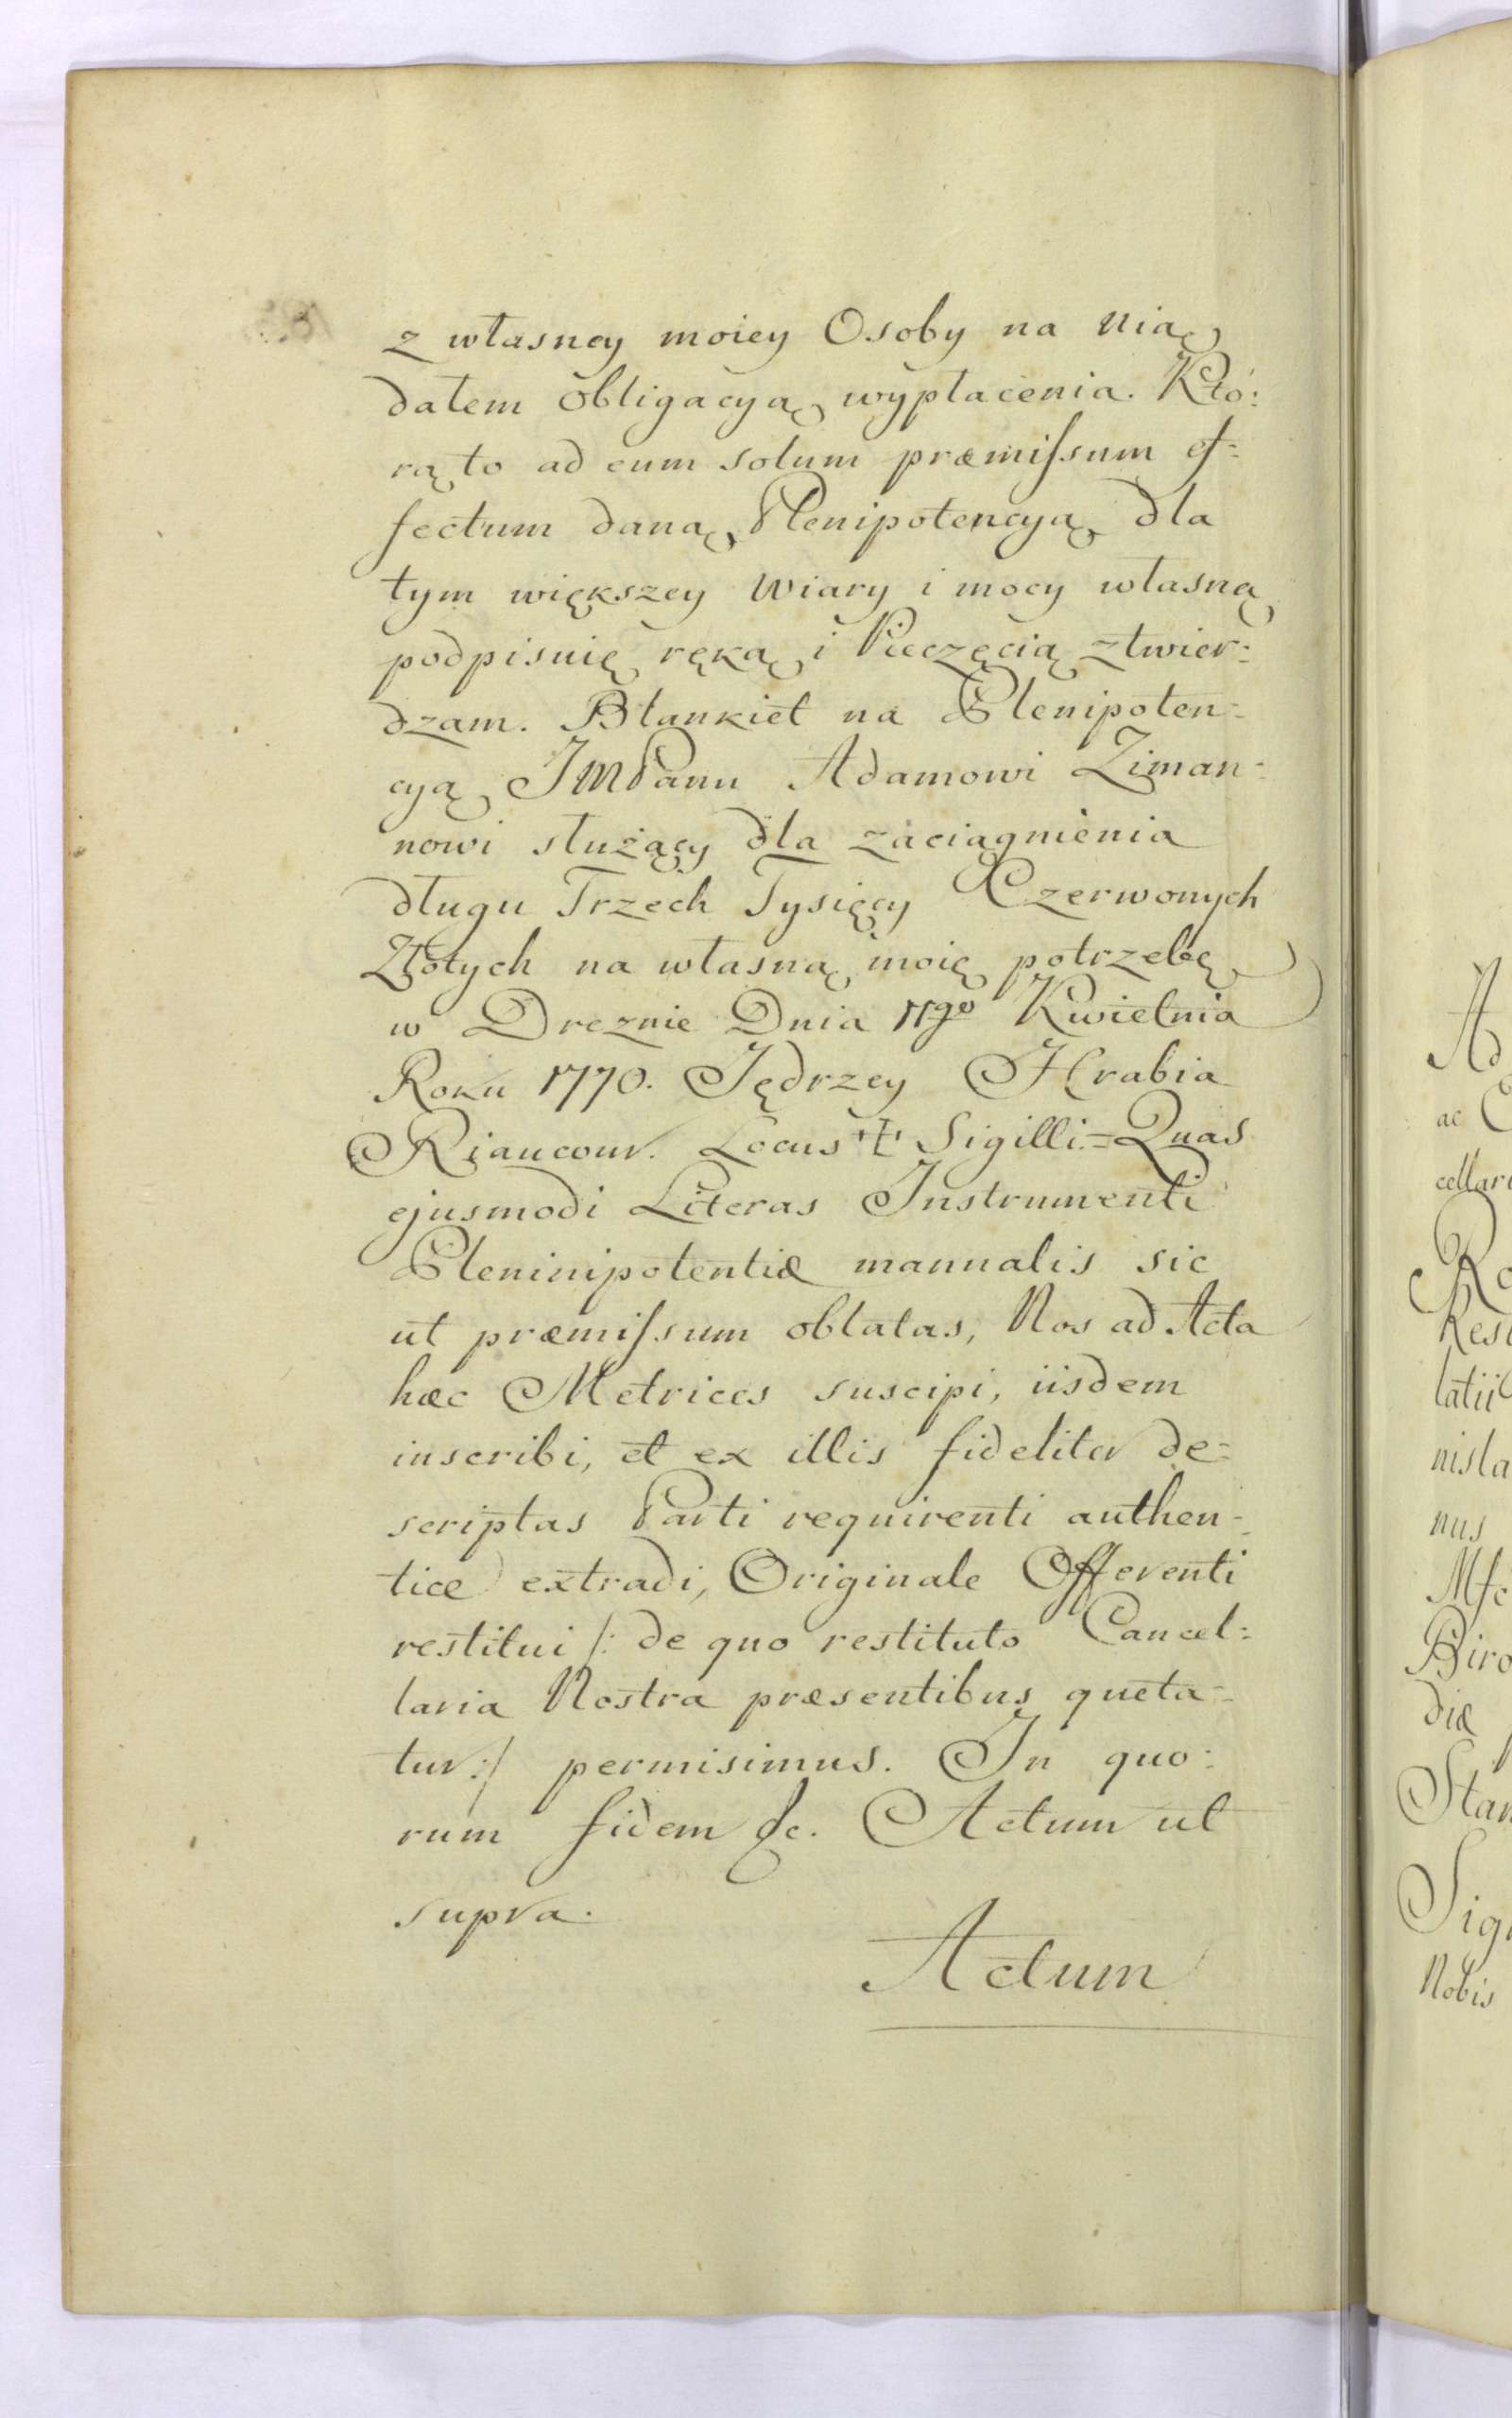 z własney moiey Osoby na nią
dałem obligacyą wypłacenia. Któ:
rą to ad eum solum præmissum ef=
fectum daną Plenipotencyą dla
tym większey wiary i mocy własną
podpisuię ręką i Pieczęcią ztwier:
dzam. Blankiet na Plenipoten=
cyą JmPanu Adamowi Ziman=
nowi służący dla zaciągnienia
długu Trzech Tysięcy Czerwonych
Złotych na własną moię potrzebę
w Dreznie Dnia 11go Kwietnia
Roku 1770. Jędrzey Hrabia
Riaucour. Locus ✝ Sigilli.=Quas
ejusmodi Literas Instrumenti
Pleninipotentiæ manualis sic
ut præmissum oblatas, Nos ad Acta
hæc Metrices suscipi, iisdem
inscribi, et ex illis fideliter de=
scriptas Parti requirenti authen=
tice extradi, Originale Offerenti
restitui /: de quo restituto Cancel:
laria Nostra præsentibus queta=
tur :/ permisimus. In quo:
rum fidem &c. Actum ut
supra.
Actum
A
ac
cellari
R
Resi
latii
nisla
nus
Mfc
Biro
diæ
Stan
Sig
Nobis